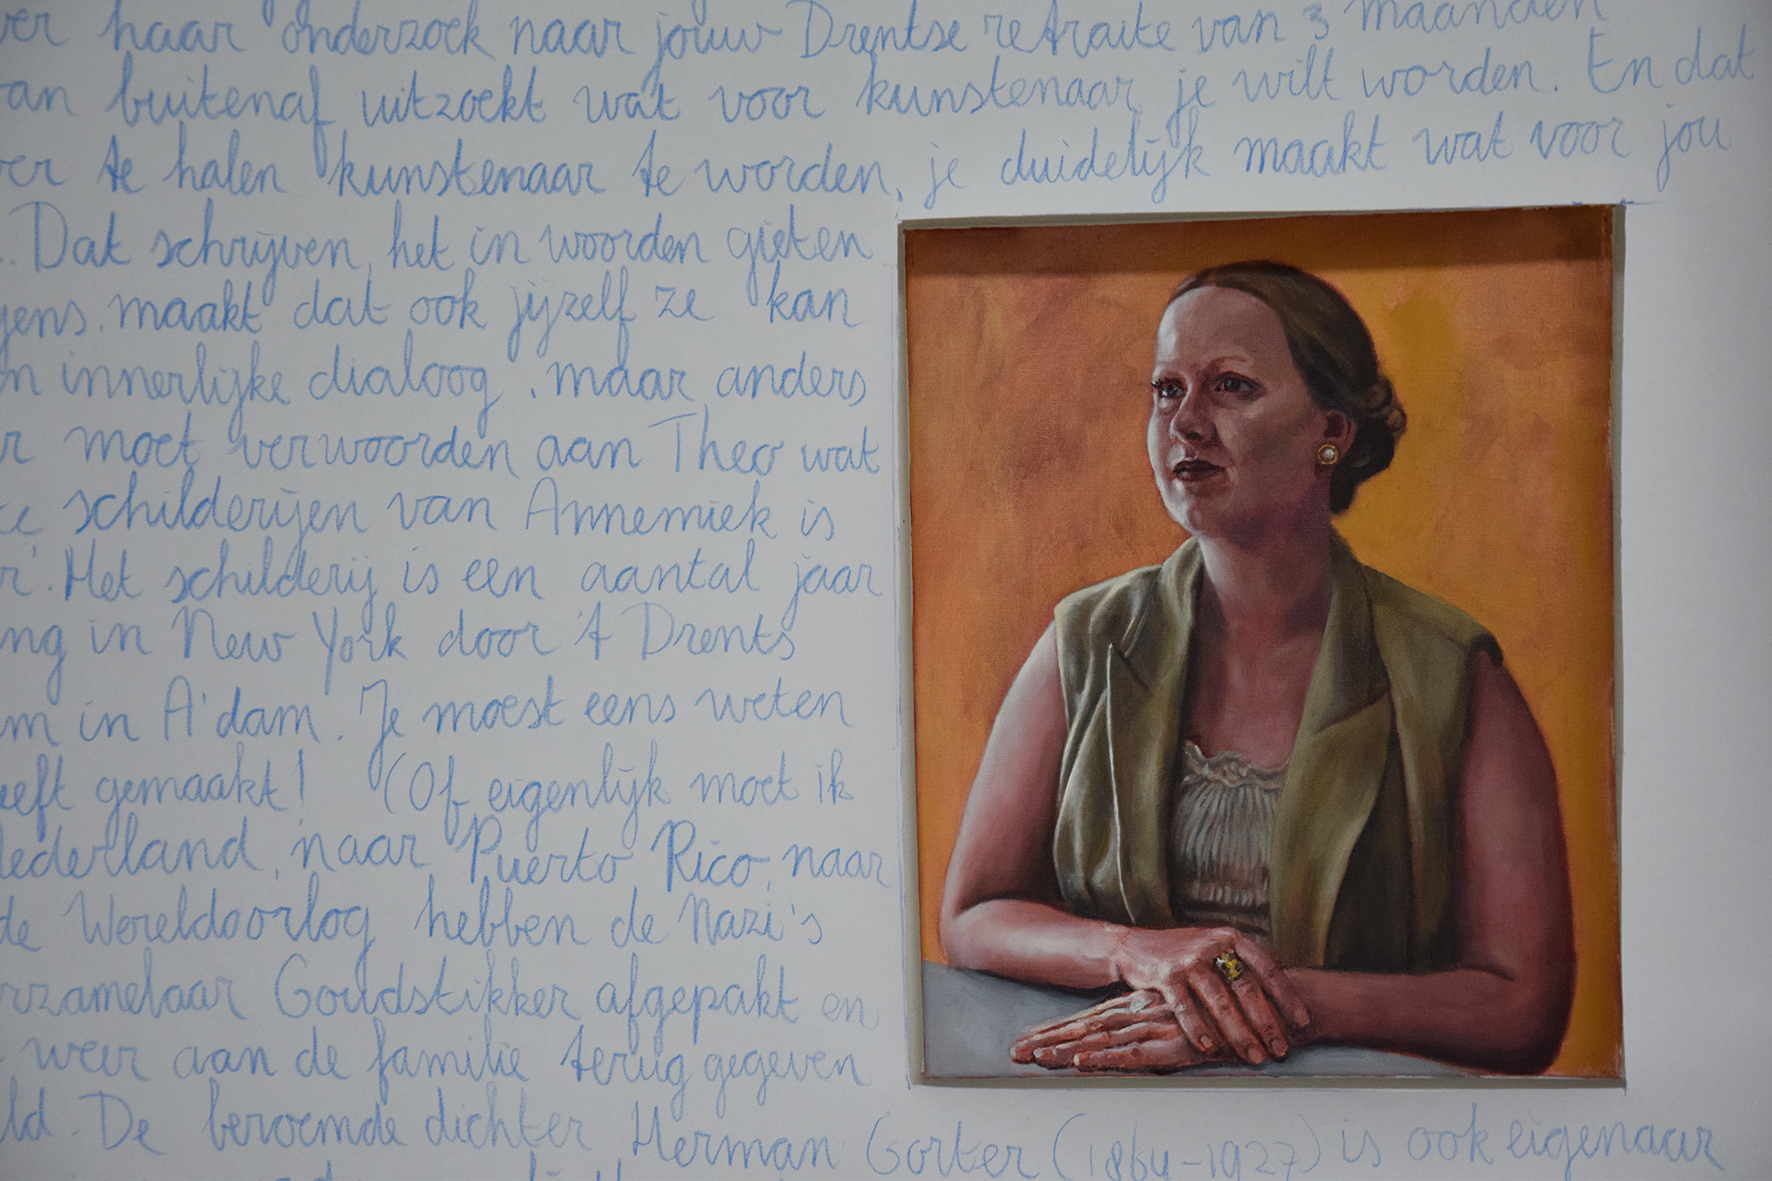 ver haar onderzoek naar jouw Drentse retraite van 3 maanden
van buitenaf uitzoekt wat voor kunstenaar je wilt worden. En dat
ver te halen kunstenaar te worden, je duidelijk maakt wat voor jou
. Dat schrijven, het in woorden gieten
gens, maakt dat ook jijzelf ze kan
n innerlijke dialoog, maar anders
r moet verwoorden aan Theo wat
te schilderijen van Annemiek is
r'. Het schilderij is een aantal jaar
ng in New York door 't Drents
m in A'dam. Je moest eens weten
eeft gemaakt! (Of eigenlijk moet ik
ederland, naar Puerto Rico, naar
de Wereldoorlog hebben de Nazi's
rzamelaar Goudstikker afgepakt en
weer aan de familie terug gegeven
ld. De beroemde dichter Herman Gorter (1864-1927) is ook eigenaar